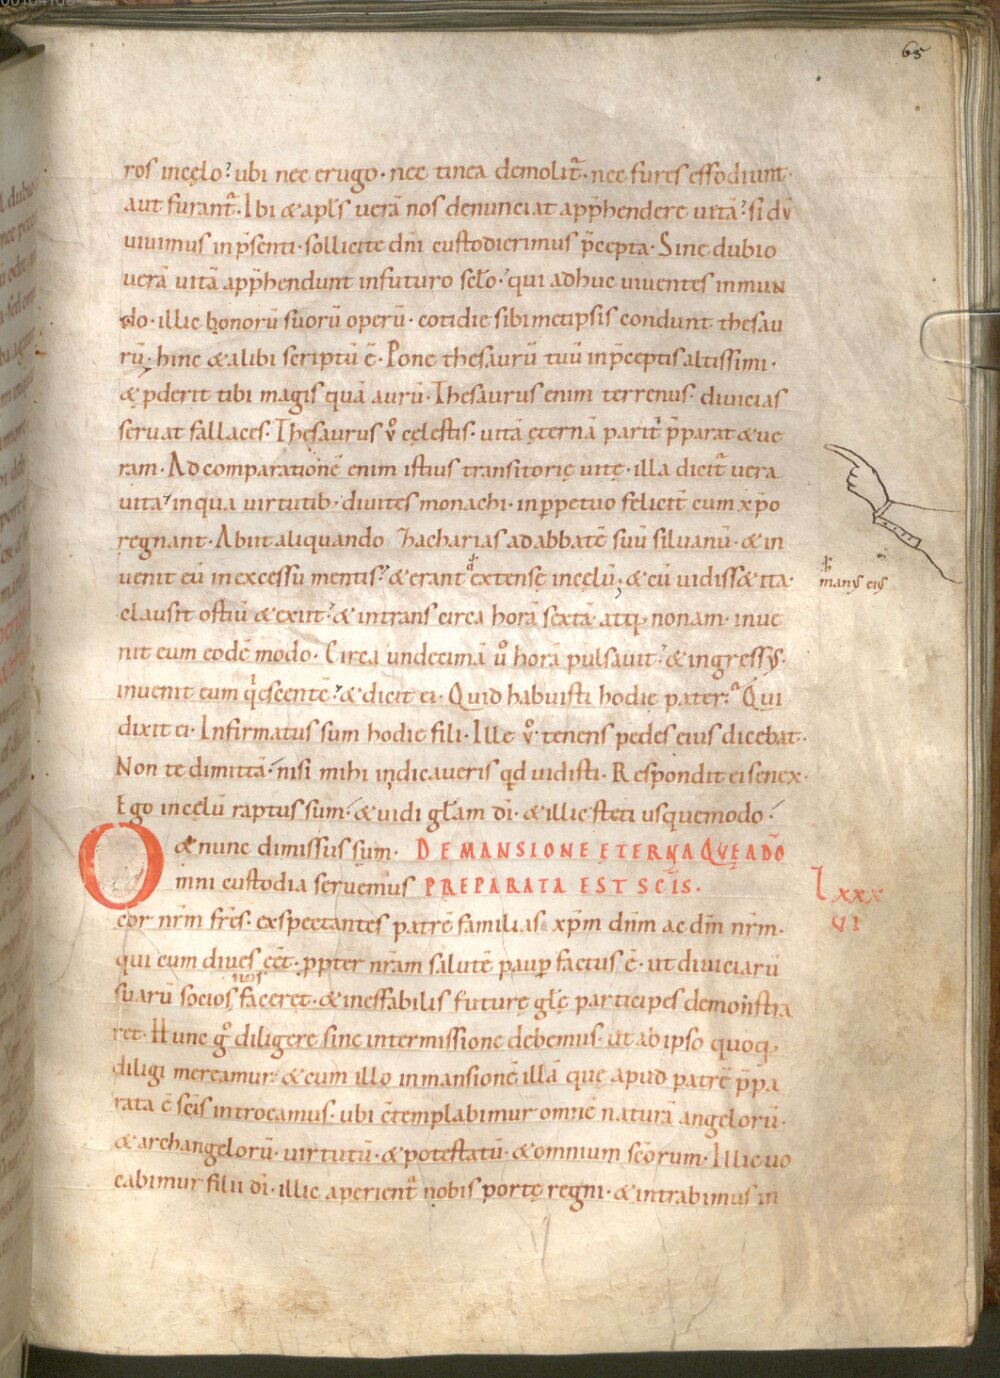 65
ros incęlo? ubi nec erugo · nec tinea demolit̄ · nec fures effodiunt ·
aut furant̄ · Ibi & apl̄s uerā nos denunciat app̄hendere uitā? si dū
uiuimus in p̄senti · sollicite dn̄i custodierimus p̄cepta · Sine dubio
uerā uitā app̄hendunt infuturo sclo · qui adhuc uiuentes inmun
do · illic honorū suorū operū · cotidie sibimetipsis condunt thesau
rū · hinc & alibi scriptū ē · Pone thesaurū tuū in p̄ceptis altissimi ·
& pderit tibi magis quā aurū · Thesaurus enim terrenus · diuicias
seruat fallaces · Thesaurus v̊ cęlestis · uitā ęternā parit p̄parat & ue
ram · Ad comparationē enim istius transitorię uitę · illa dicit̄ uera
uita? in qua uirtutib; diuites monachi · in ppetuo felicit̄ cum xp̄o
regnant · Abiit aliquando Zacharias ad abbatē suū siluanū · & in
uenit eū in excessu mentis? & erant extensę incęlū; & cū uidiss& ita ·
manꝰ eiꝰ
clausit ostiū & exiit? & intrans circa horā sextā · atq; nonam · inue
nit eum eodē modo · Circa undecimā ů horā pulsauit? & ingressꝰ ·
inuenit eum q'escentē? & dicit ei · Quid habuisti hodie pater? Qui
dixit ei · Infirmatus sum hodie fili · Ille v̊ · tenens pedes eius dicebat ·
Non te dimittā · nisi mihi indicaueris qd uidisti · Respondit ei senex ·
Ego incęlū raptus sum · & uidi gl̄am dī · & illic steti usquemodo ·
& nunc dimissus sum · DE MANSIONE ETERNA QVE A DŌ
Omni custodia seruemus PREPARATA EST SC̄IS ·
Lxxx
VI
cor nrm̄ frēs · exspectantes patrē familias xp̄m dn̄m ac dm̄ nrm̄ ·
qui cum diues eēt · ppter nrām salutē paup factus ē · ut diuiciarū
suarū socios nos faceret · & ineffabilis futurę glę̄ participes demonstra
ret · Hunc g̊ diligere sine intermissione debemus · ut ab ipso quoq;
diligi mereamur · & cum illo in mansionē illā que apud patrē p̄pa
rata ē sc̄is introeamus · ubi c̄templabimur omnē naturā angelorū ·
& archangelorū · uirtutū · & potestatū · & omnium sc̄orum · Illic uo
cabimur filii dī · illic aperient̄ nobis portę regni · & intrabimus in